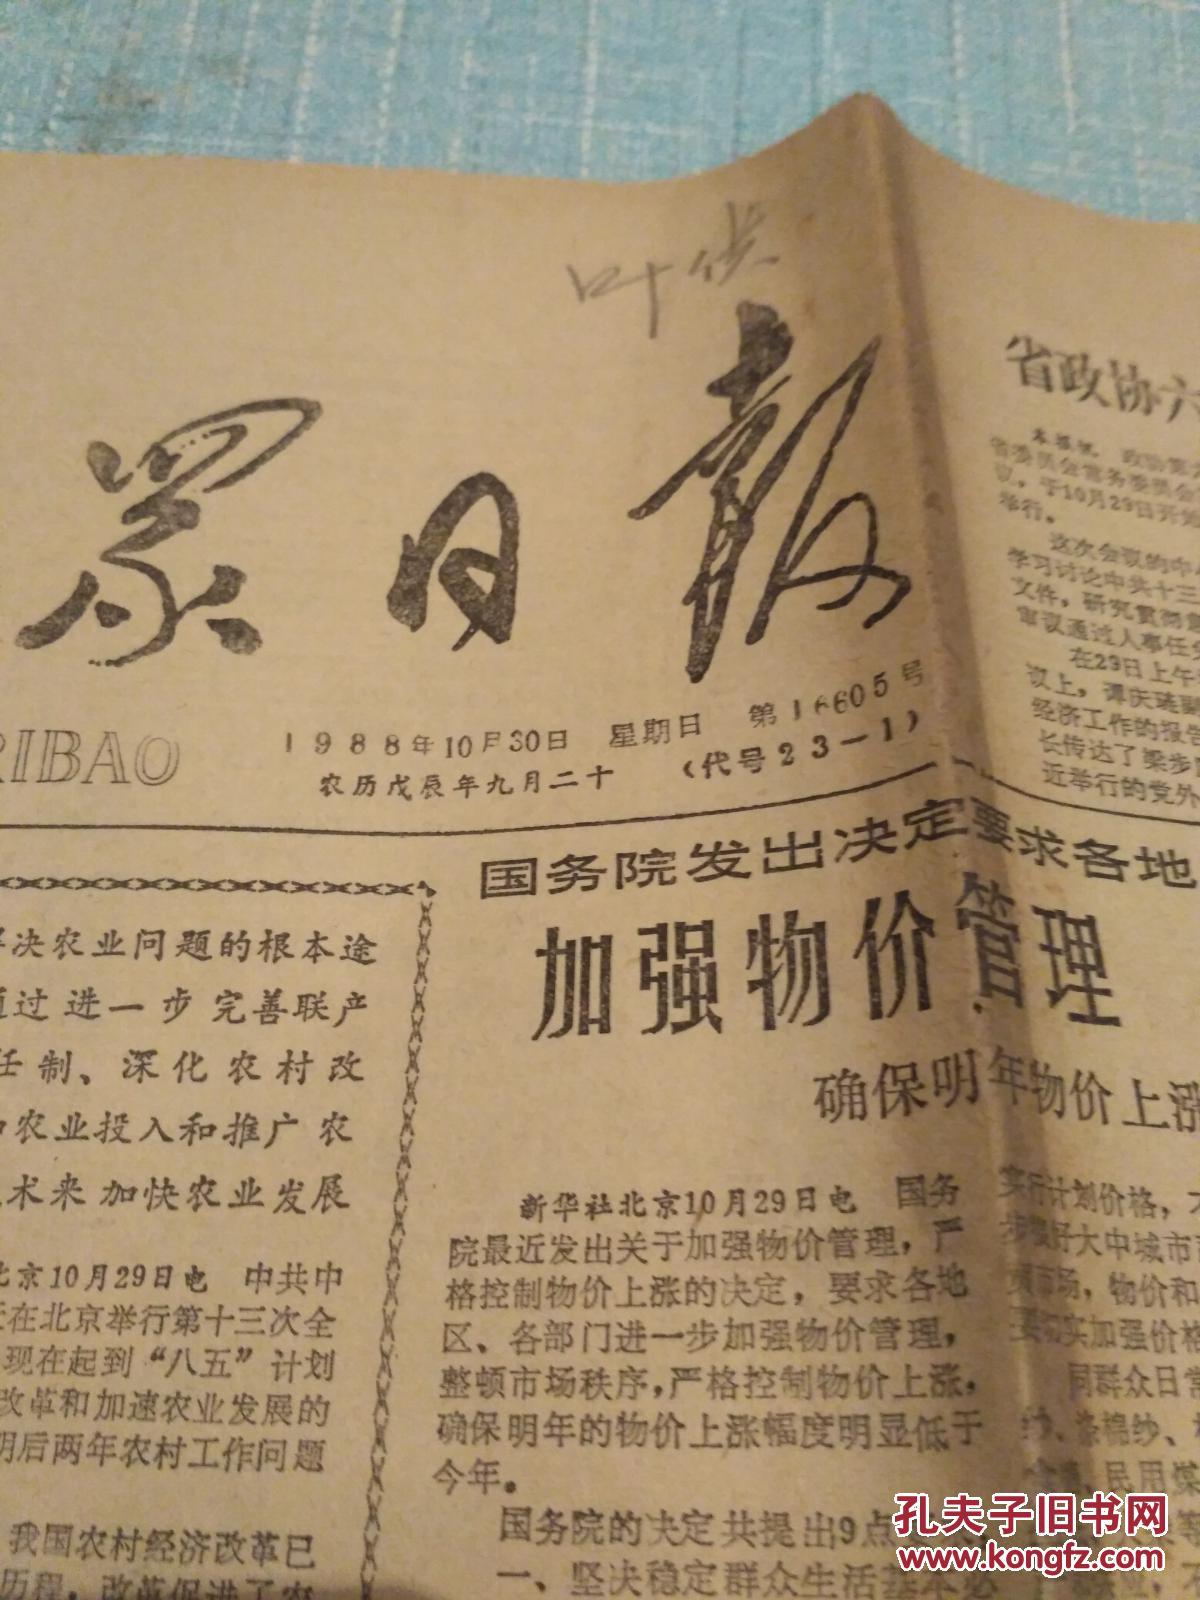 眾日報
RIBAO
1988年10月30日 星期日 第16605号
农历戊辰年九月二十 (代号23—1)
决农业问题的根本途
过进一步完善联产
任制、深化农村改
农业投入和推广农
术来加快农业发展
京10月29日电 中共中
在北京举行第十三次全
现在起到“八五”计划
改革和加速农业发展的
明后两年农村工作问题
我国农村经济改革已
历程，改革促进了农
国务院发出决定要求各地
加强物价管理
确保明年物价上涨
新华社北京10月29日电 国务
院最近发出关于加强物价管理，严
格控制物价上涨的决定，要求各地
区、各部门进一步加强物价管理，
整顿市场秩序，严格控制物价上涨，
确保明年的物价上涨幅度明显低于
今年。
国务院的决定共提出9点
一、坚决稳定群众生活基本必
实行计划价格，
步缓好大中城市
市场，物价和
要切实加强价格
同群众日常
纱、涤棉纱、
民用煤
省政协六
本报讯 政协
省委员会常务委员会
议，于10月29日开
举行。
这次会议的中
学习讨论中共十三
文件，研究贯彻
审议通过人事任免
在29日上午
议上，谭庆琏副
经济工作的报告
长传达了梁步
近举行的党外
孔夫子旧书网
www.kongfz.com